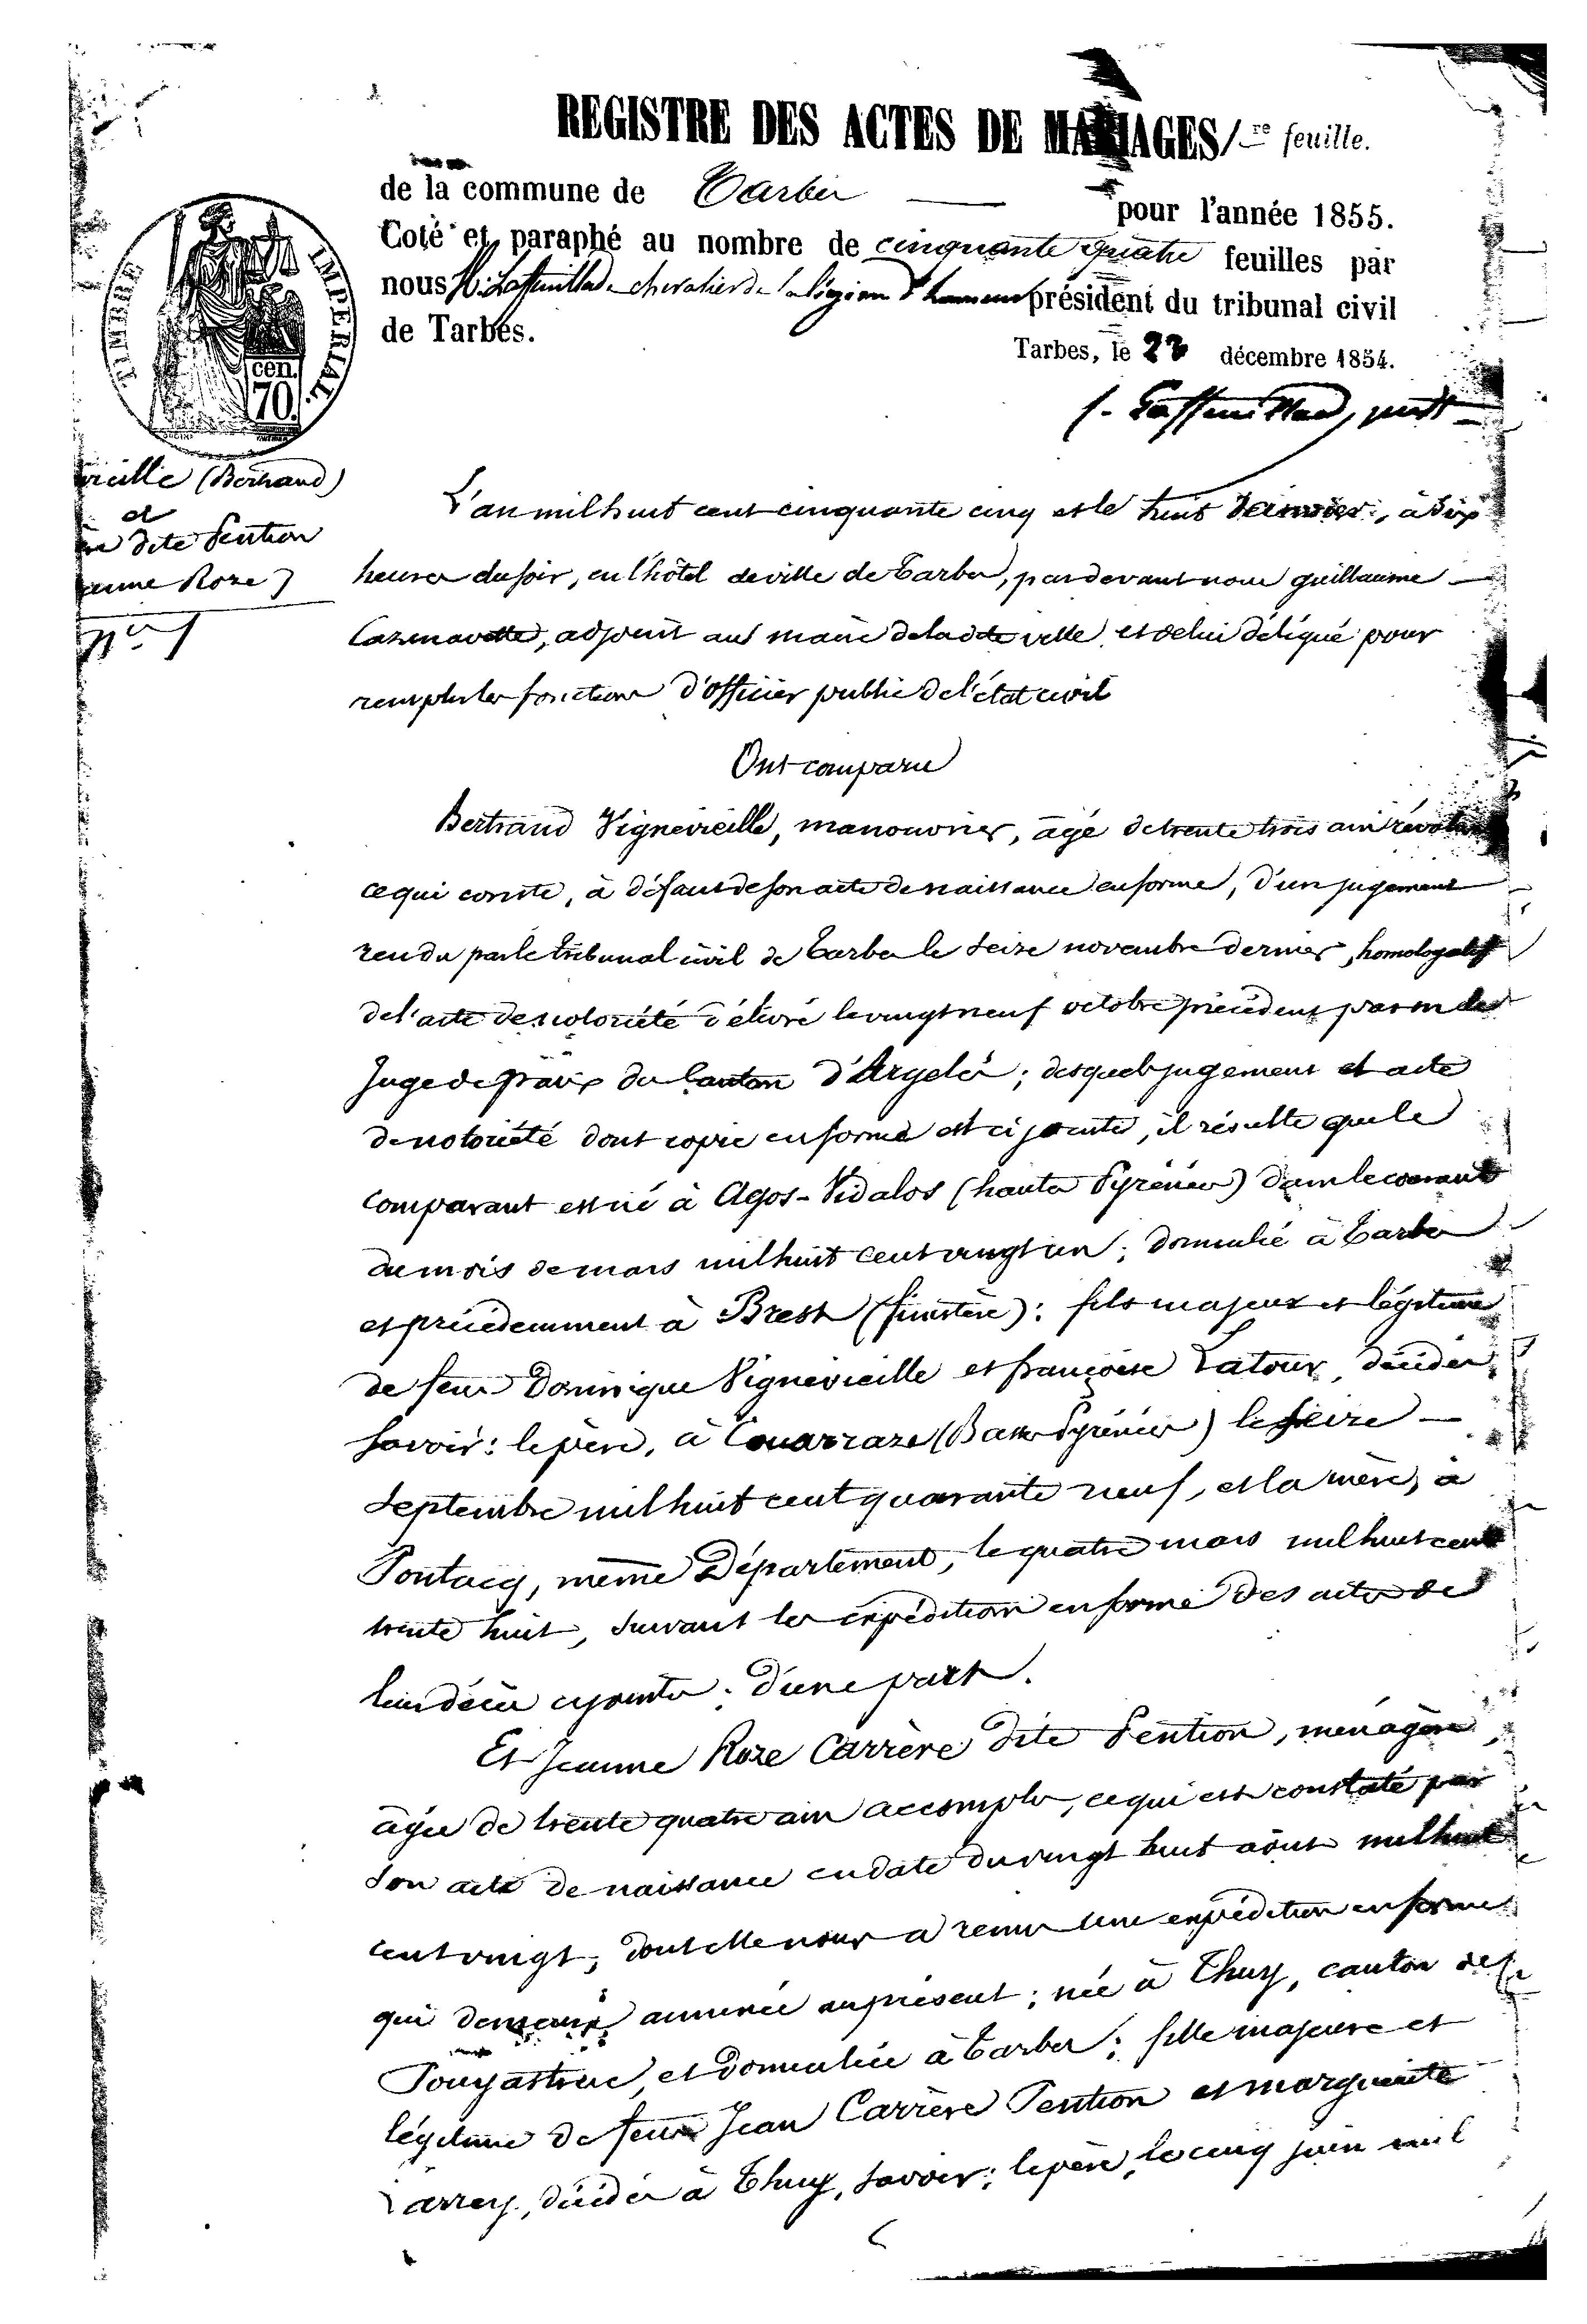 REGISTRE DES ACTES DE MARIAGES 1re feuille.
de la commune de Tarbes pour l'année 1855.
Coté et paraphé au nombre de cinquante quatre feuilles par
nous chevalier de la légion d'honneur président du tribunal civil
de Tarbes.
Tarbes, le décembre 1854.
TIMBRE IMPERIAL.
cen.
70.
vieille (Bertrand)
et
dite Pention
Roze
N° 1
L'an mil huit cent cinquante cinq et le huit Janvier, à six
heures du soir, en l'hôtel de ville de Tarbes, par devant nous Guillaume
Cazenavette, adjoint au maire de la dite ville et de lui délégué pour
remplir les fonctions d'officier public de l'état civil
Ont comparu
Bertrand Vignevieille, manouvrier, âgé de trente trois ans révolus
ce qui conste, à défaut de son acte de naissance en forme, d'un jugement
rendu par le tribunal civil de Tarbes le seize novembre dernier, homologatif
de l'acte de notoriété délivré le vingt neuf octobre précédent par m le
Juge de paix du Canton d'Argelès; desquels jugement et acte
de notoriété dont copie en forme est ci jointe, il résulte que le
comparant est né à Agos-Vidalos (hautes Pyrénées) dans le courant
du mois de mars mil huit cent vingt un; domicilié à Tarbes
et précédemment à Brest (finistère): fils majeur et légitime
de feus Dominique Vignevieille et françoise Latour, décédés,
savoir: le père, à Couarraze (Basses Pyrénées) le seize
septembre mil huit cent quarante neuf, et la mère, à
Pontacq, même Département, le quatre mars mil huit cent
trente huit, suivant les expéditions en forme des actes de
leur décès ci jointes; d'une part.
Et Jeanne Roze Carrère dite Pention, ménagère,
âgée de trente quatre ans accomplis, ce qui est constaté par
son acte de naissance en date du vingt huit août mil huit
cent vingt, dont elle nous a remis une expédition en forme
qui demeure annexée au présent; née à Thuy, canton de
Pouyastruc, et domiciliée à Tarbes; fille majeure et
légitime de feus Jean Carrère Pention et marguerite
Larrey, décédés à Thuy, savoir: le père, le cinq juin mil